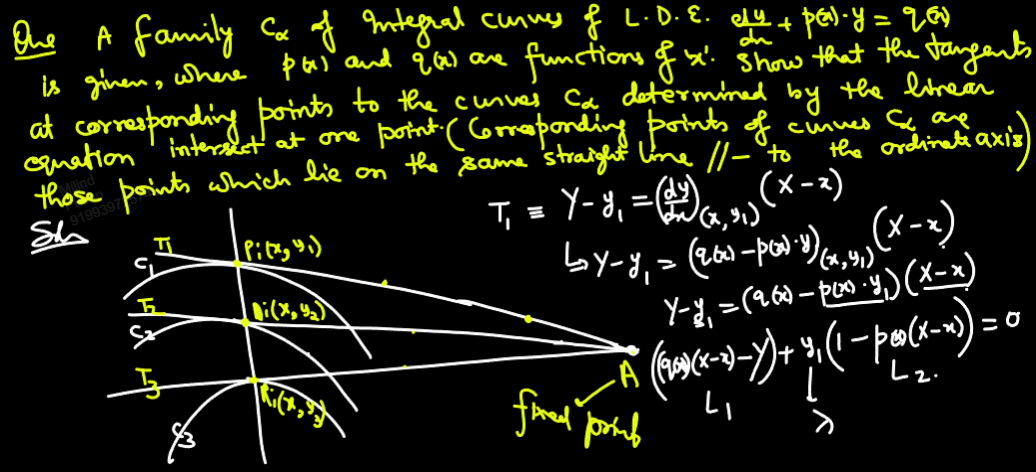 Que A family Cα of Integral curves of L.D.E. dy/dx + p(x)·y = q(x)
is given, where p(x) and q(x) are functions of 'x'. Show that the tangents
at corresponding points to the curves Cα determined by the linear
equation intersect at one point. (Corresponding points of curves Cα are
those points which lie on the same straight line //– to the ordinate axis)
Sol
T₁ ≡ Y-y₁ = (dy/dx)(x, y₁) (X-x)
↳ Y-y₁ = (q(x) - p(x)·y)(x, y₁) (X-x)
Y-y₁ = (q(x) - p(x)·y₁)(X-x)
(q(x)(X-x)-Y) + y₁(1 - p(x)(X-x)) = 0
L₁
λ
L₂.
T₁
C₁
P:(x, y₁)
T₂
C₂
Q:(x, y₂)
T₃
C₃
R:(x, y₃)
A
fixed point